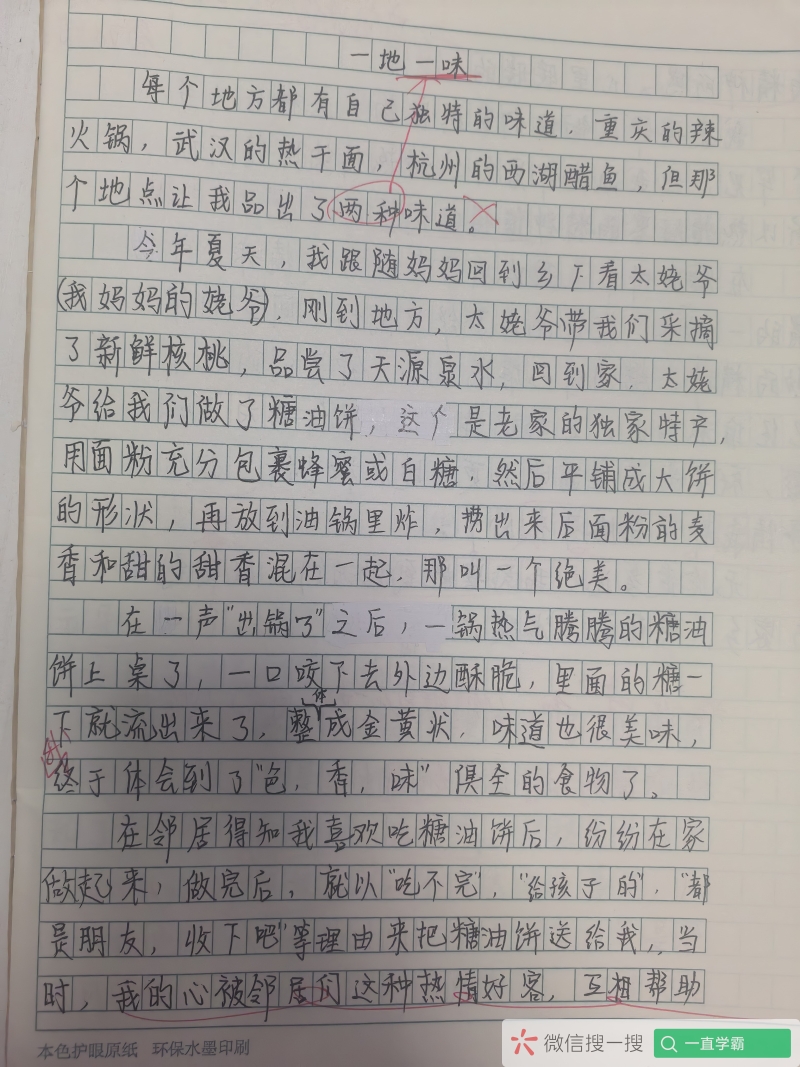 一地一味
每个地方都有自己独特的味道，重庆的辣
火锅，武汉的热干面，杭州的西湖醋鱼，但那
个地点让我品出了两种味道。
今年夏天，我跟随妈妈回到乡下看太姥爷
(我妈妈的姥爷)，刚到地方，太姥爷带我们采摘
了新鲜核桃，品尝了天源泉水，回到家，太姥
爷给我们做了糖油饼，这个是老家的独家特产，
用面粉充分包裹蜂蜜或白糖，然后平铺成大饼
的形状，再放到油锅里炸，捞出来后面粉的麦
香和甜的甜香混在一起，那叫一个绝美。
在一声"出锅了"之后，一锅热气腾腾的糖油
饼上桌了，一口咬下去外边酥脆，里面的糖一
下就流出来了，整体成金黄状，味道也很美味，
我终于体会到了"色，香，味"俱全的食物了。
在邻居得知我喜欢吃糖油饼后，纷纷在家
做起来，做完后，就以"吃不完"，"给孩子的"，"都
是朋友，收下吧"等理由来把糖油饼送给我，当
时，我的心被邻居们这种热情好客，互相帮助
本色护眼原纸 环保水墨印刷
微信搜一搜 一直学霸